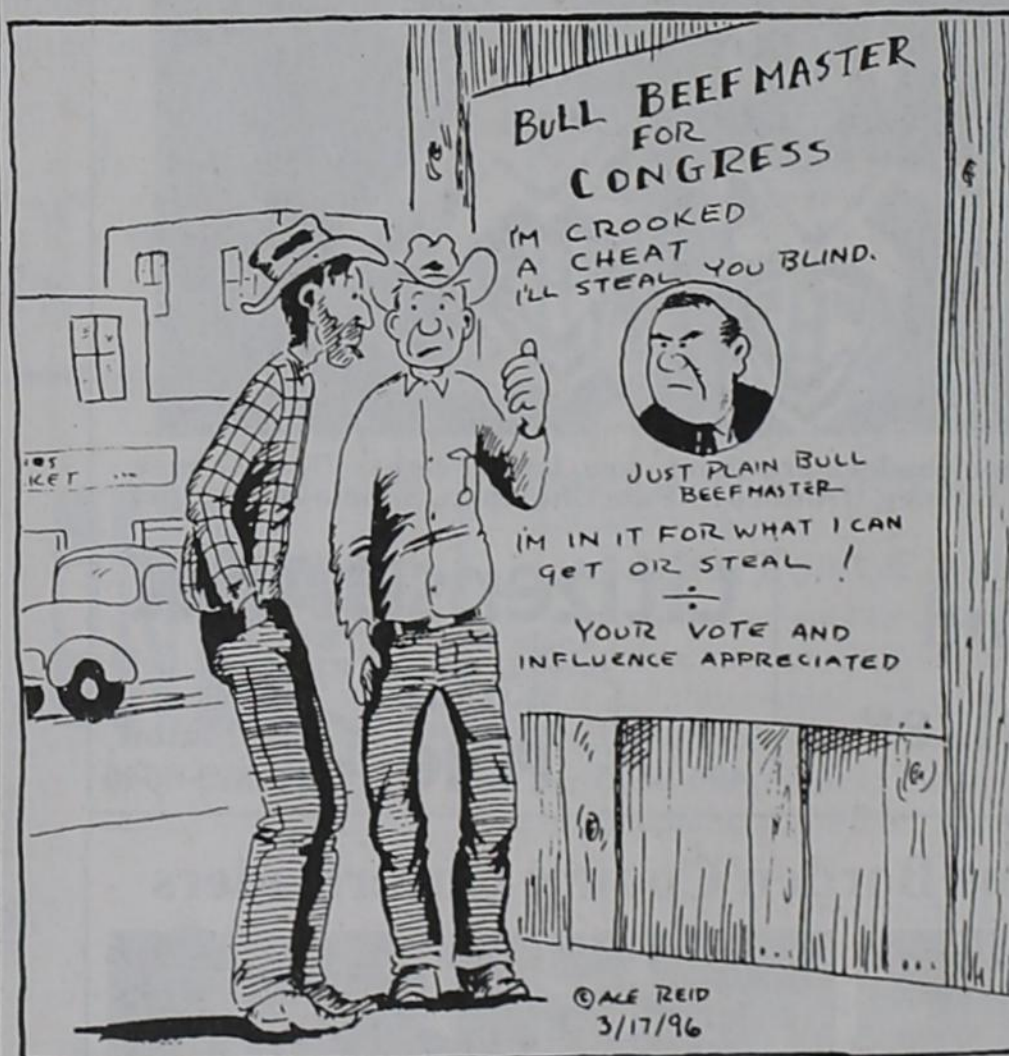 BULL BEEFMASTER
FOR
CONGRESS
I'M CROOKED
A CHEAT
I'LL STEAL YOU BLIND.
JUST PLAIN BULL
BEEFMASTER
I'M IN IT FOR WHAT I CAN
GET OR STEAL !
YOUR VOTE AND
INFLUENCE APPRECIATED
KET
© ACE REID
3/17/96